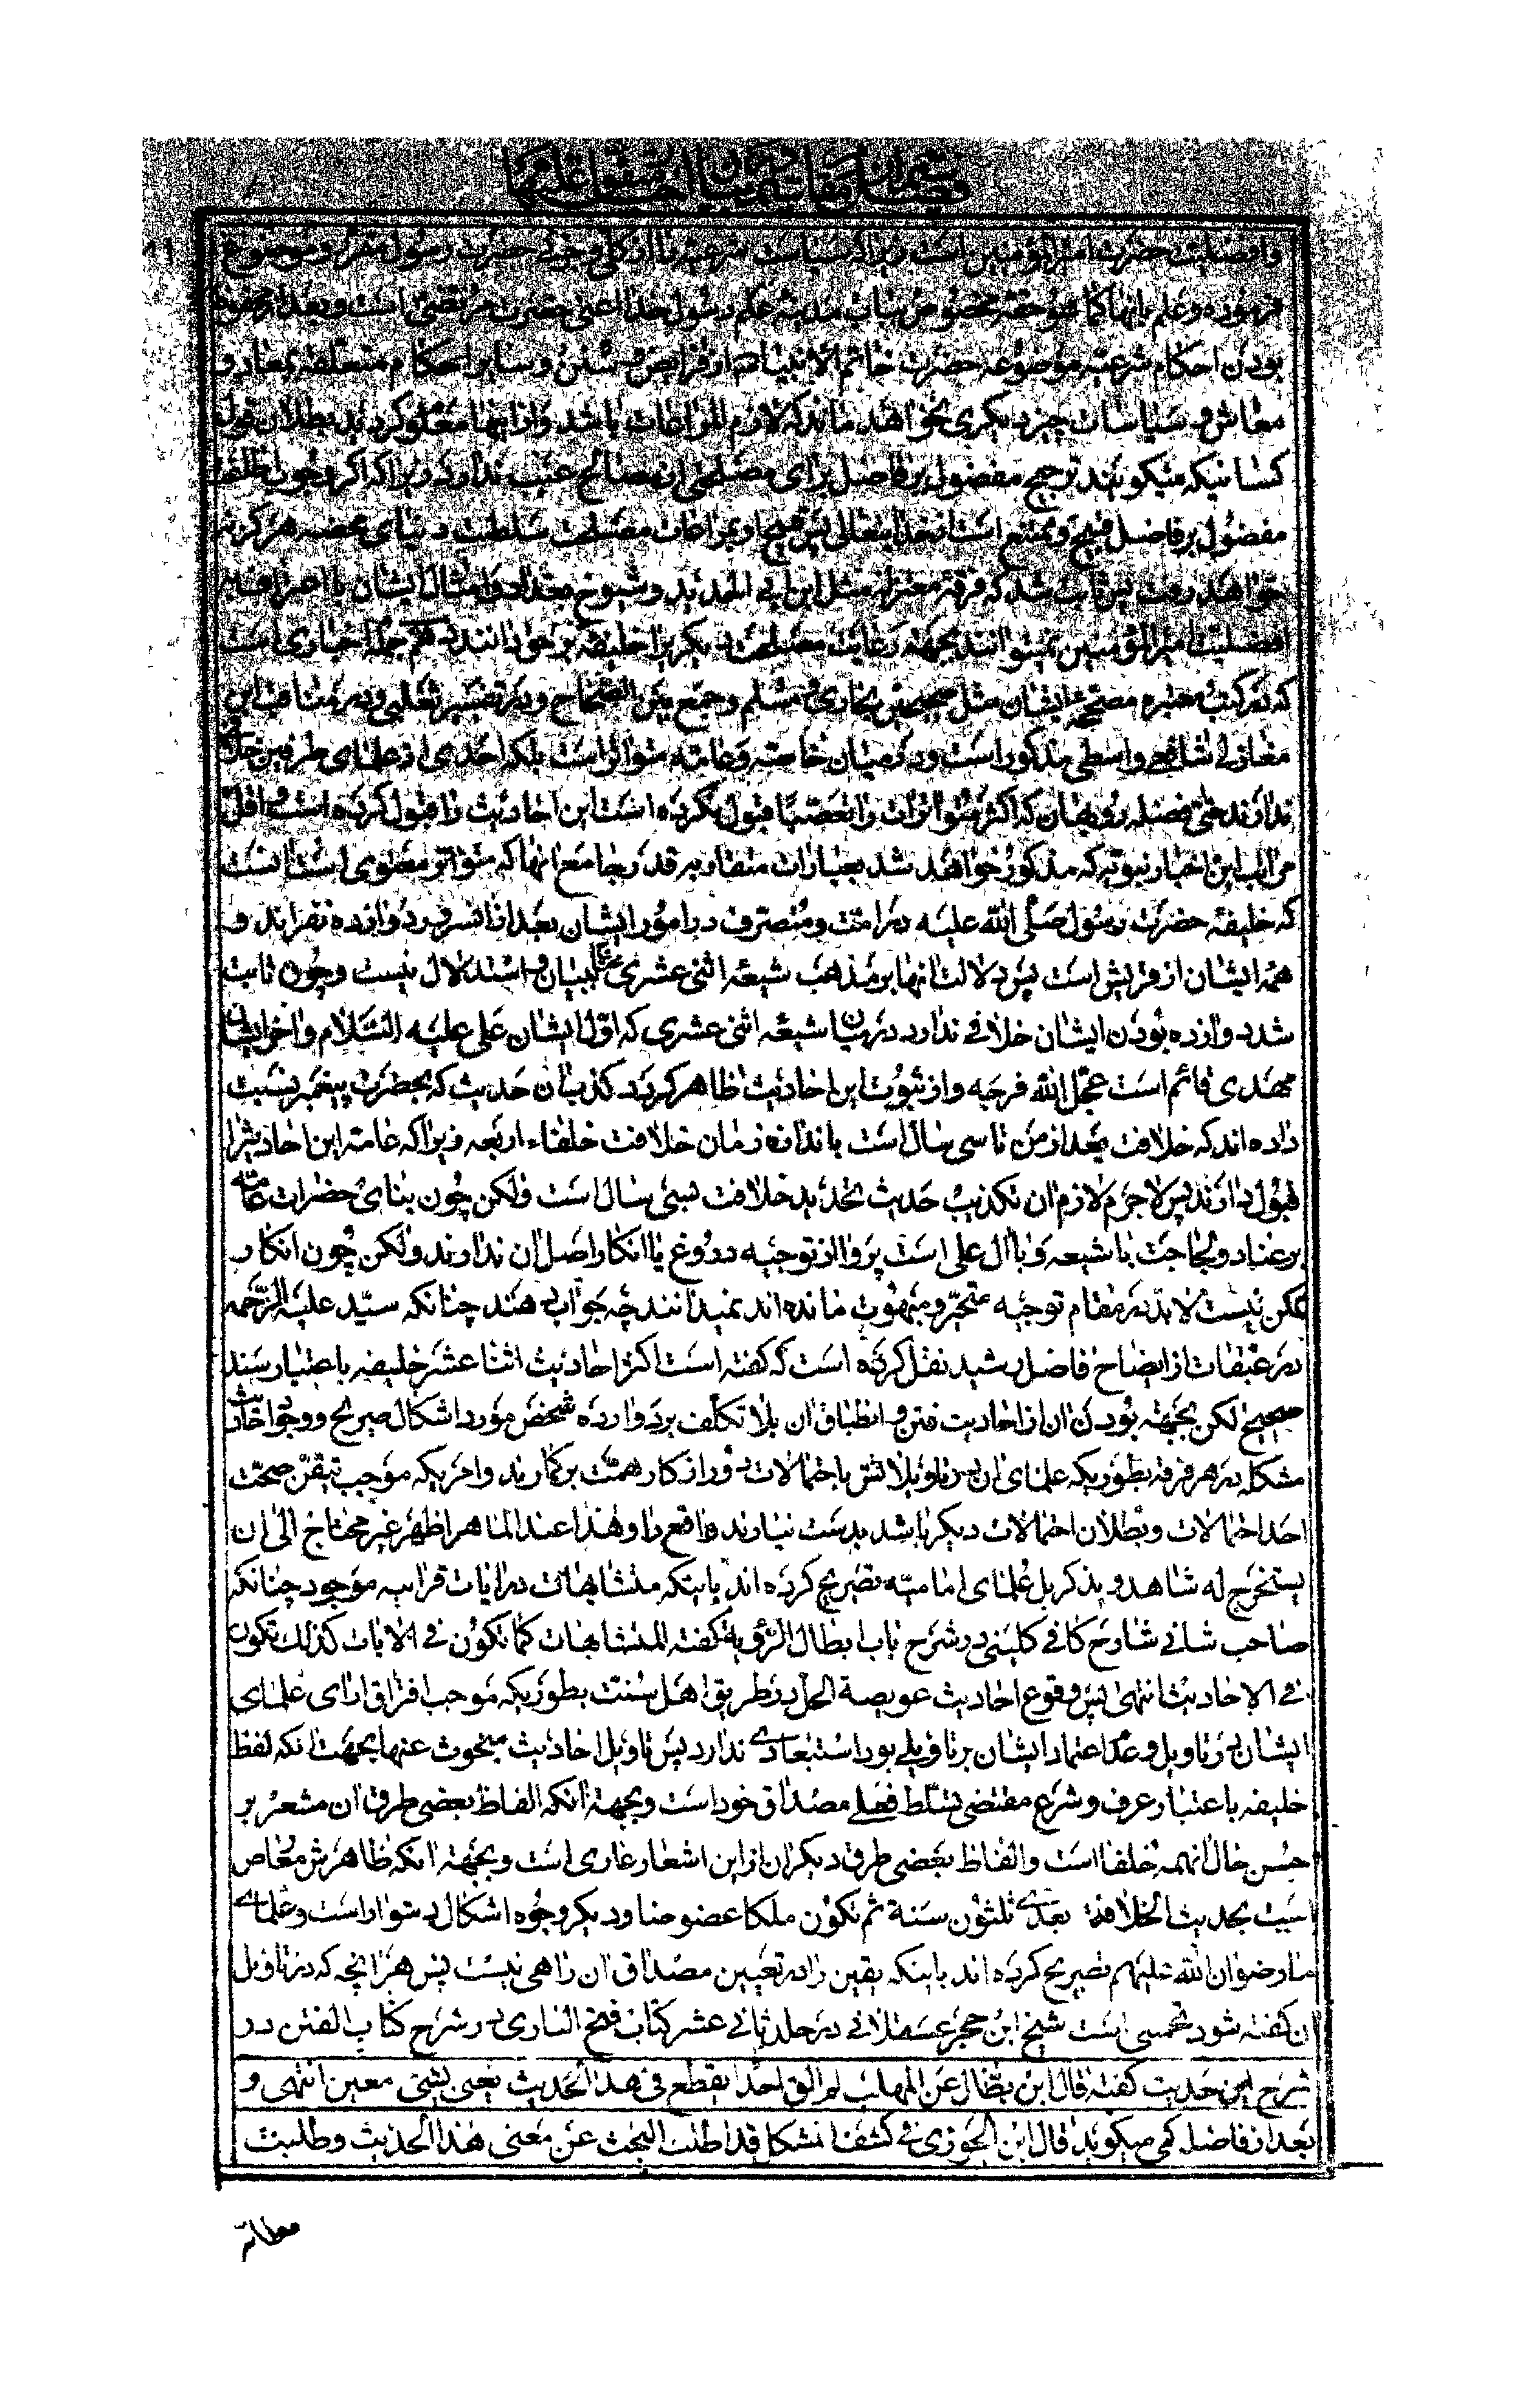 وافضلیت حضرت امیرالمؤمنین است زیرا که سیاست شرعیه را از کلی و جزئی حضرت رسول مقرر و موضوع
فرموده و علم بانها کما هو حقه مخصوص بباب مدینه علم رسول خدا اعنی حضرت مرتضی است و بعد از
بودن احکام شرعیه موضوعه حضرت خاتم الانبیاء از فرایض و سنن و سایر احکام متعلقه بمعاد و
معاش و سیاسات چیز دیکری نخواهد ماند که لازم المراعات باشد و از اینها معلوم کردید بطلان قول
کسانیکه میکویند ترجیح مفضول بر فاضل برای مصلحتی از مصالح عیب ندارد زیرا که
مفضول بر فاضل قبیح و ممتنع است از خدایتعالی پس قبح او بمراعات مصلحت سلطنت دنیای محضه هرکز نه
خواهد رفت پس ثابت شد که فرقه معتزله مثل ابن ابی الحدید و شیوخ بغداد و امثال ایشان با اعتراف به
افضلیت امیرالمؤمنین نمیتوانند بجهة رعایت مصلحت دیکریرا خلیفه برحق دانند دهم جمله اخباری است
که در کتب معتبره مصححه ایشان مثل صحیحین بخاری و مسلم و جمع بین الصحاح و در تفسیر ثعلبی و در مناقب ابن
مغازلی شافعی واسطی مذکور است و در میان خاصه و عامه متواتر است بلکه احدی از علمای طرفین خلافی
ندارند حتی فضله روزبهان که اکثر متواترات را تعصبا قبول نکرده است این احادیث را قبول کرده است و اقل
مراتب این اخبار نبویه که مذکور خواهد شد بعبارات متقاربه قدر جامع انها که متواتر معنوی است انست
که خلیفه حضرت رسول صلی الله علیه در امت و متصرف در امور ایشان بعد از انسرور دوازده نفراند و
همه ایشان از قریش است پس دلالت انها بر مذهب شیعه اثنی عشری محتاج ببیان و استدلال نیست و چون ثابت
شد دوازده بودن ایشان خلافی ندارد درمیان شیعه اثنی عشری که اول ایشان علی علیه السلام و اخر ایشان
مهدی قائم است عجل الله فرجه و از ثبوت این احادیث ظاهر کردد کذب ان حدیث که بحضرت پیغمبر نسبت
داده اند که خلافت بعد از من تا سی سال است باندازه زمان خلافت خلفاء اربعه زیرا که عامه این احادیث را
قبول دارند پس لاجرم لازم ان تکذیب حدیث تحدید خلافت بسی سال است ولکن چون بنای حضرات عامه
بر عناد و لجاجت با شیعه و با ال علی است پروا از توجیه دروغ یا انکار اصل ان ندارند ولکن چون انکار
ممکن نیست لابد در مقام توجیه متحیر و مبهوت مانده اند نمیدانند چه جواب دهند چنانکه سید علیه الرحمه
در عبقات از ایضاح فاضل رشید نقل کرده است که کفته است اکثر احادیث اثنا عشر خلیفه باعتبار سند
صحیح لکن بجهة بودن ان از احادیث فتن و انطباق ان بلا تکلف بر دوازده شخص مورد اشکال صریح و وجود احادیث
مشکله در هر فرقه بطوریکه علمای ان در تاویلاتش باحتمالات دور از کار همت برکمارند و امریکه موجب تیقن صحت
احد احتمالات و بطلان احتمالات دیکر باشد بدست نیاورند واقع را وهذا عند الماهر اظهر غیر محتاج الی ان
یستخرج له شاهد و یذکر بل علمای امامیه تصریح کرده اند باینکه متشابهات در ایات قرانیه موجود چنانکه
صاحب شافی شارح کافی کلینی در شرح باب ابطال الرؤیة کفته المتشابهات کما تکون فی الایات کذلک تکون
فی الاحادیث انتهی پس وقوع احادیث عویصة الحل در طریق اهل سنت بطوریکه موجب افتراق ارای علمای
ایشان در تاویل و عدم اعتماد ایشان بر تاویلی بود استبعادی ندارد پس تاویل احادیث مبحوث عنها بجهت انکه لفظ
خلیفه باعتبار عرف و شرع مقتضی تسلط فعلی مصداق خود است و بجهة انکه الفاظ بعضی طرق ان مشعر بر
حسن حال انهمه خلفا است و الفاظ بعضی طرق دیکر ان از این اشعار عاری است و بجهة انکه ظاهرش معارض
است بحدیث الخلافة بعدی ثلثون سنة ثم تکون ملکا عضوضا و دیکر وجوه اشکال دشوار است و علمای
ما رضوان الله علیهم تصریح کرده اند باینکه یقین را در تعیین مصداق ان راهی نیست پس هر انچه که در تاویل
ان کفته شود تخمینی است شیخ ابن حجر عسقلانی در جلد ثانی عشر کتاب فتح الباری در شرح کتاب الفتن در
شرح این حدیث کفته قال ابن بطال عن المهلب لم الق احدا یقطع فی هذا الحدیث یعنی بشئ معین انتهی و
بعد از فاصله کمی میکوید قال ابن الجوزی فی کشف المشکل قد اطلت البحث عن معنی هذا الحدیث و طلبت
مظانه